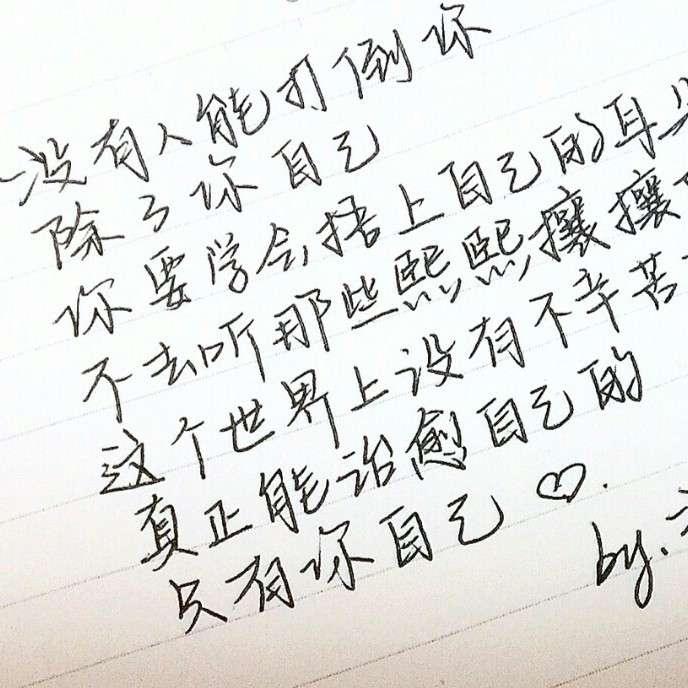 没有人能打倒你
除了你自己
你要学会捂上自己的耳
不去听那些熙熙攘攘
这个世界上没有不辛苦
真正能治愈自己的
只有你自己♡.
by.